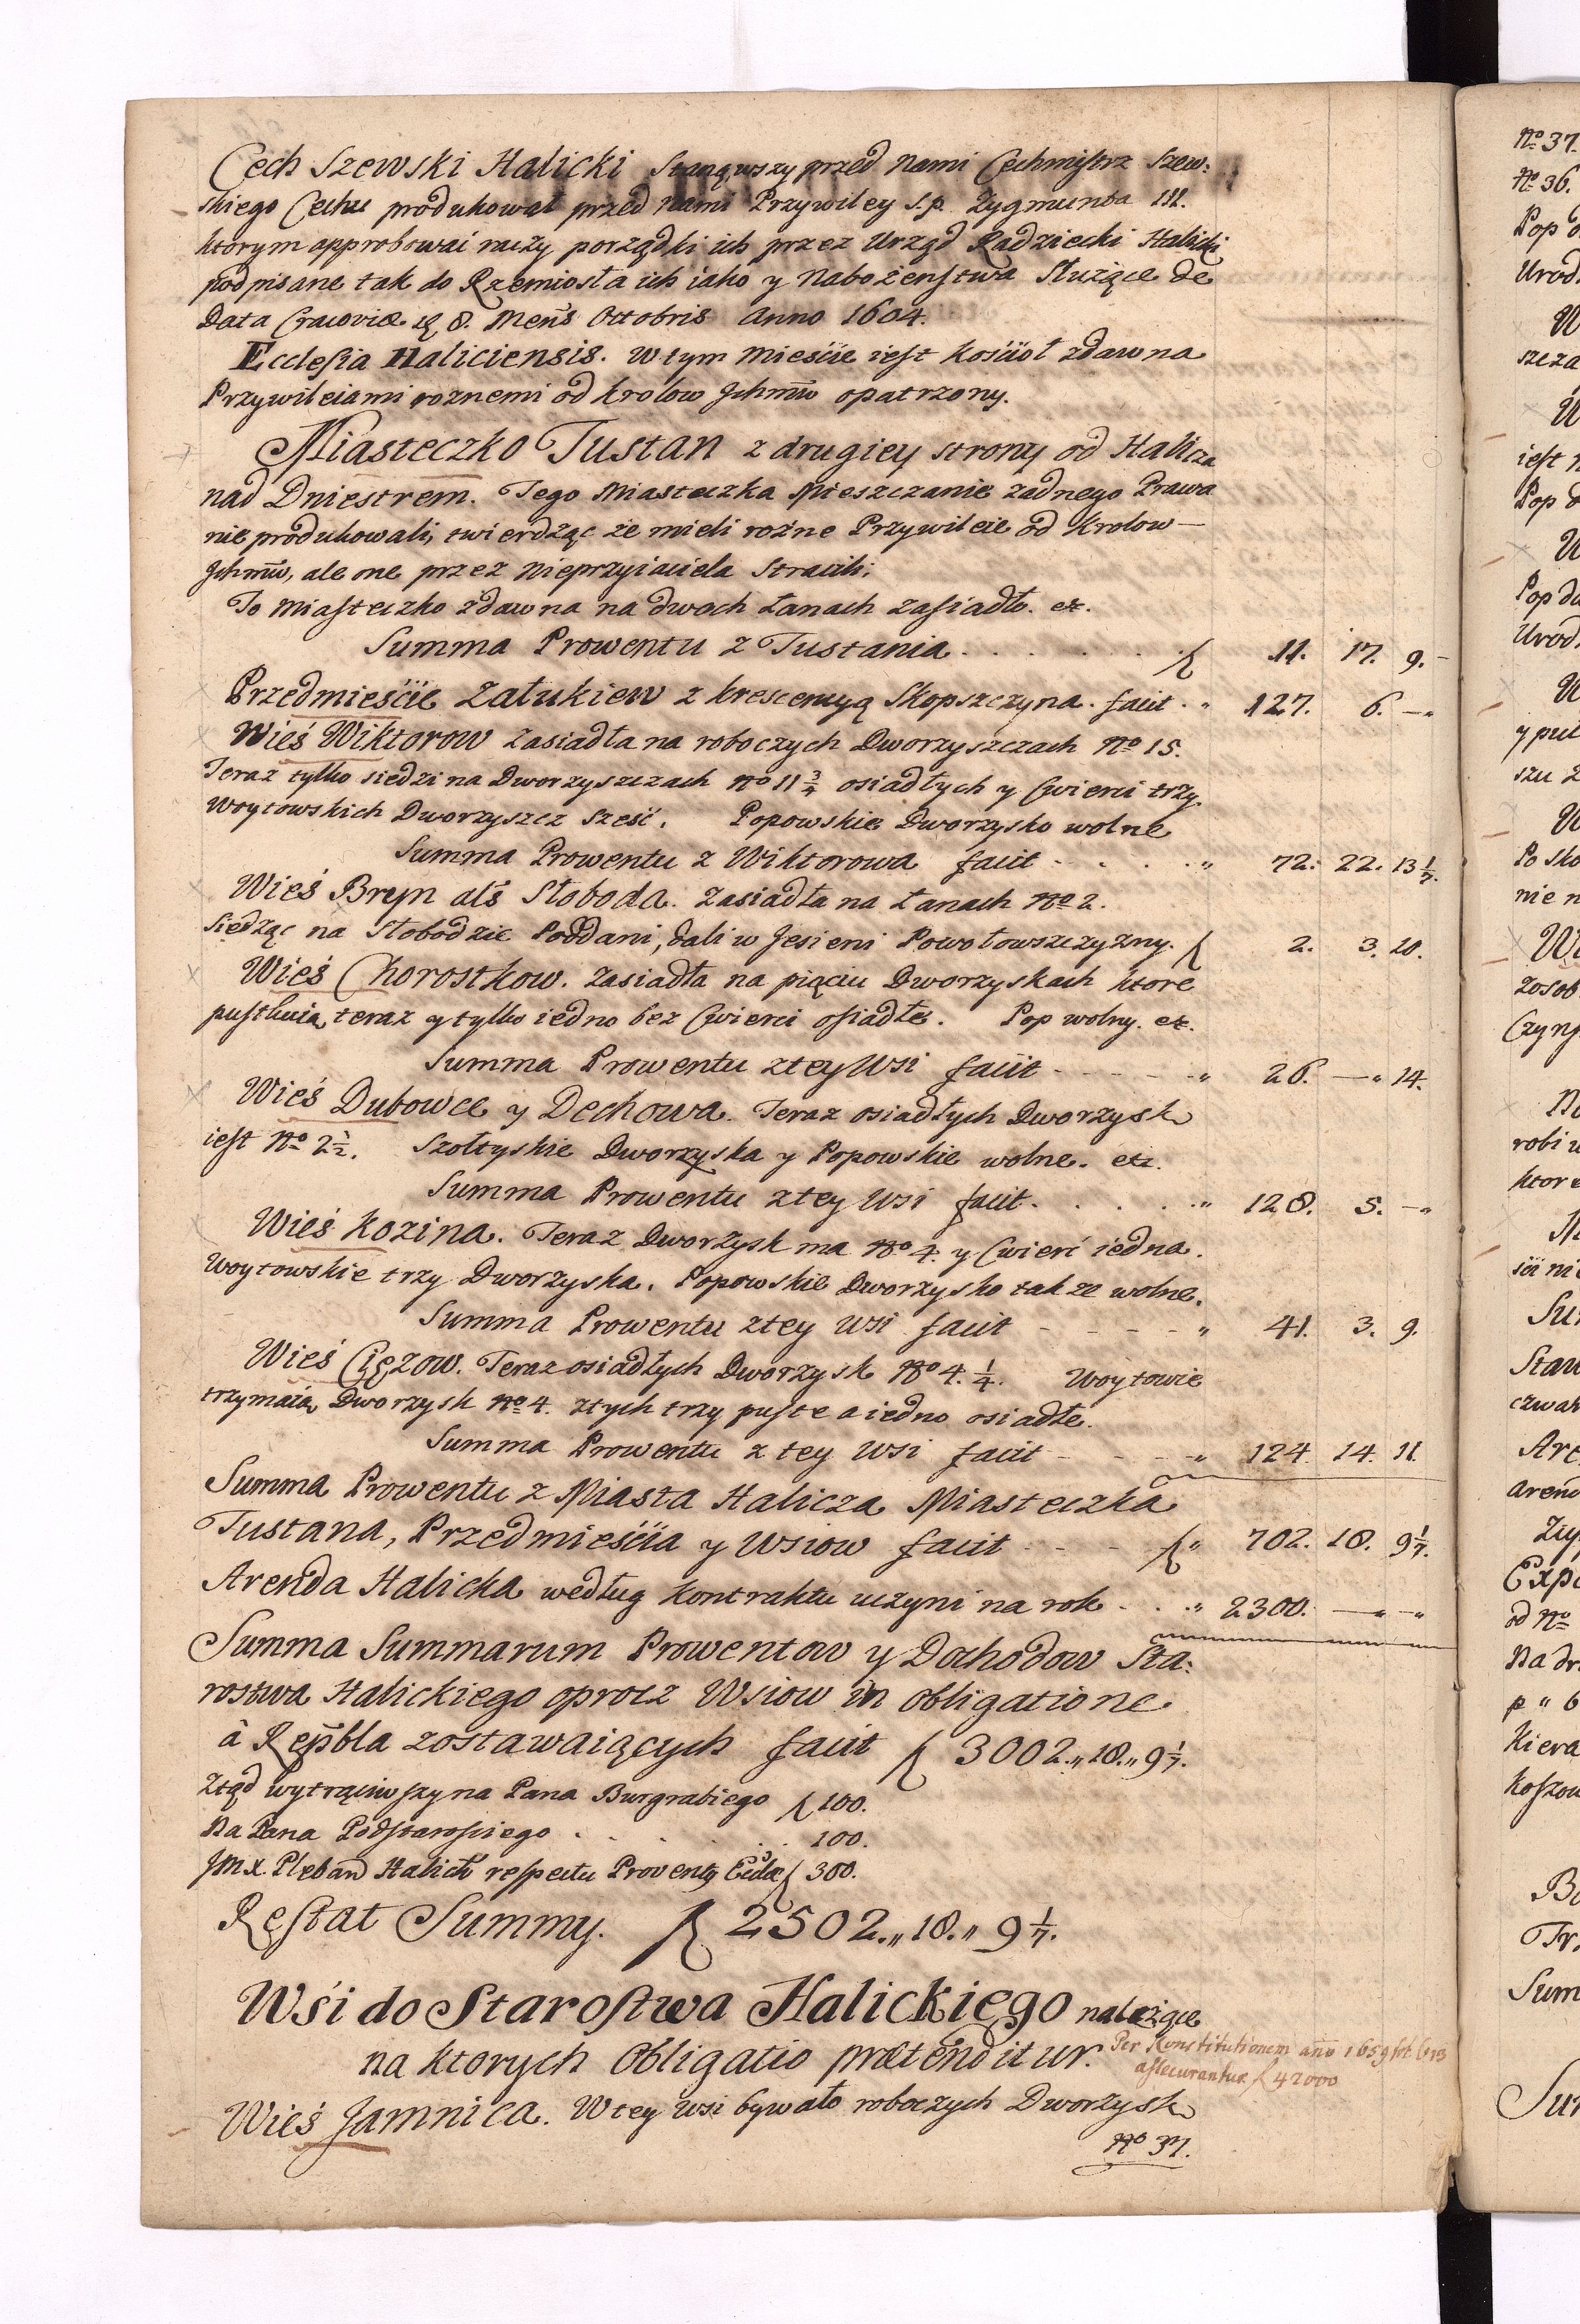 Cech Szewski Halicki Stanąwszy przed nami Cechmistrz Szew:
skiego Cechu produkował przed nami Przywiley s.p. Zygmunta III.
ktorym approbować raczy porządki ich przez Urząd Radziecki Halicki
podpisane tak do Rzemiosła ich iako y Nabożenstwa Służące de
Data Cracoviæ 8. Mens Octobris Anno 1604.
Ecclesia Haliciensis. W tym Mieście iest Kościoł zdawna
Przywileiami roznemi od Krolow Jchmśw opatrzony.
Miasteczko Tustan z drugiey strony od Halicza
nad Dniestrem. Tego Miasteczka Mieszczanie żadnego Prawa
nie produkowali, twierdząc że mieli rożne Przywileie od Krolow
Jchmśw, ale one przez Nieprzyiaciela Stracili.
To Miasteczko zdawna na dwoch Łanach zasiadło. etc.
Summa Prowentu z Tustania . . . . . . 11. 17. 9.
Przedmieście Załukiew z krescencyą Skopszczyna. facit . „ 127. 6. —„
Wieś Wiktorow zasiadła na roboczych Dworzyszczach No 15.
Teraz tylko siedzi na Dworzyszczach No 11 3/4 osiadłych y Cwierci trzy.
Woytowskich Dworzyszcz Sześć. Popowskie Dworzysko wolne
Summa Prowentu z Wiktorowa facit . . . . „ 72. 22. 13 1/7.
Wieś Bryn als Słoboda. Zasiadła na Łanach No 2.
Siedząc na Słobodzie Poddani, dali w Jesieni Powołowszczyzny. 2. 3. 20.
Wieś Chorostkow. Zasiadła na pięciu Dworzyskach ktore
pustkuią teraz y tylko iedno bez Cwierci osiadłe. Pop wolny. etc.
Summa Prowentu z tey Wsi facit - - - - „ 26. —„ 14.
Wieś Dubowce y Dechowa. Teraz osiadłych Dworzysk
iest No 2 1/2. Szołtyskie Dworzyska y Popowskie wolne. etc.
Summa Prowentu z tey Wsi facit. . . . . „ 128. 5. —„
Wieś Kozina. Teraz Dworzysk ma No 4. y Cwierć iedna.
Woytowskie trzy Dworzyska. Popowskie Dworzysko takze wolne.
Summa Prowentu z tey Wsi facit - - - - „ 41. 3. 9.
Wieś Ciężow. Teraz osiadłych Dworzysk No 4. 1/4. Woytowie
trzymaią Dworzysk No 4. z tych trzy puste a iedno osiadłe.
Summa Prowentu z tey Wsi facit - - - „ 124. 14. 11.
Summa Prowentu z Miasta Halicza Miasteczka
Tustana, Przedmieścia y Wsiow facit - - - „ 702. 18. 9 1/7.
Arenda Halicka według Kontraktu uczyni na rok . . „ 2300. —„ —„
Summa Summarum Prowentow y Dochodow Sta:
rostwa Halickiego oprocz Wsiow in obligatione
à Repbla zostawaiących facit 3002.„ 18.„ 9 1/7.
Ztąd wytrąciwszy na Pana Burgrabiego 100.
Na Pana Podstarosciego . . . . . 100.
JMX. Pleban Halick respectu Prowentu 300.
Restat Summy. 2502.„ 18.„ 9 1/7.
Wśi do Starostwa Halickiego należące
na ktorych Obligatio prætenditur. Per Konstitutionem ano 1659
assecurantur 42000
Wieś Jamnica. W tey wsi bywało roboczych Dworzysk
No 37.
No 37.
No 36.